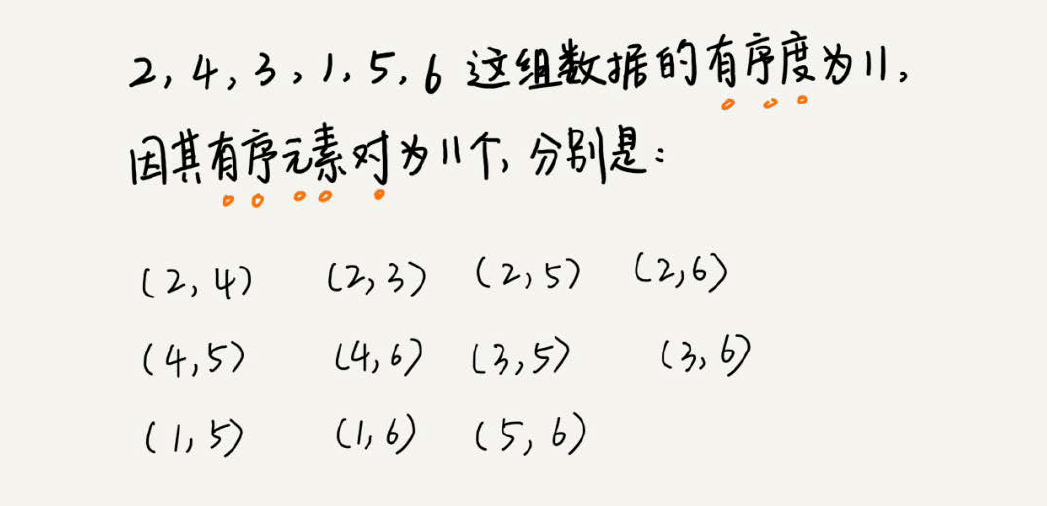 2, 4, 3, 1, 5, 6 这组数据的有序度为11,
因其有序元素对为11个, 分别是:
(2, 4) (2, 3) (2, 5) (2,6)
(4,5) (4, 6) (3,5) (3, 6)
(1, 5) (1, 6) (5, 6)